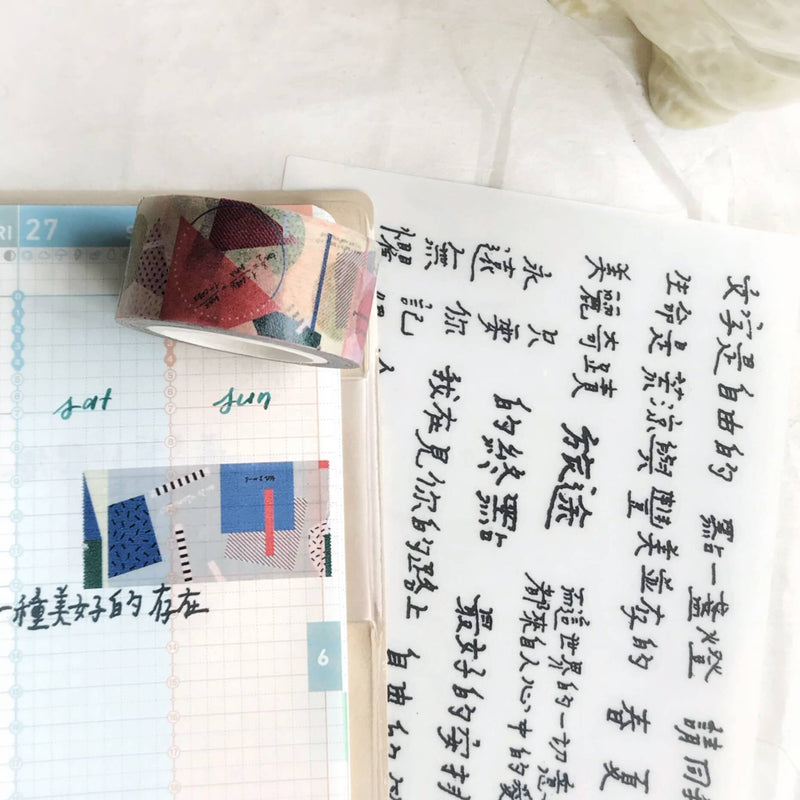 RI 27 S
sat sun
一種美好的存在
6
文字是自由的
點一盞燈
請同
生命是荒涼與豐美並存的
春夏
美麗奇蹟
旅途
而這世界的一切意
都來自人心中的愛
永遠
只要你
的終點
最好的安排
無
記
我在見你的路上
自由